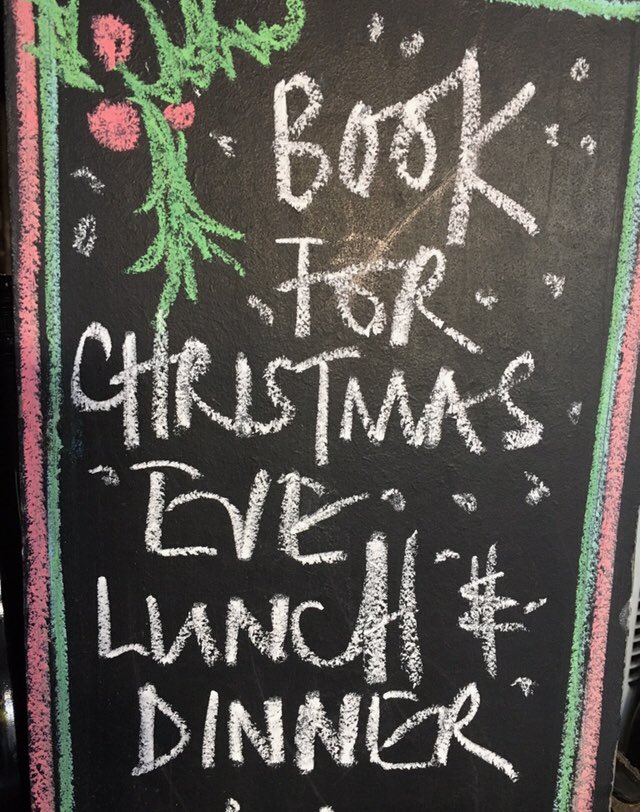 BOOK
FOR
CHRISTMAS
EVE
LUNCH &
DINNER